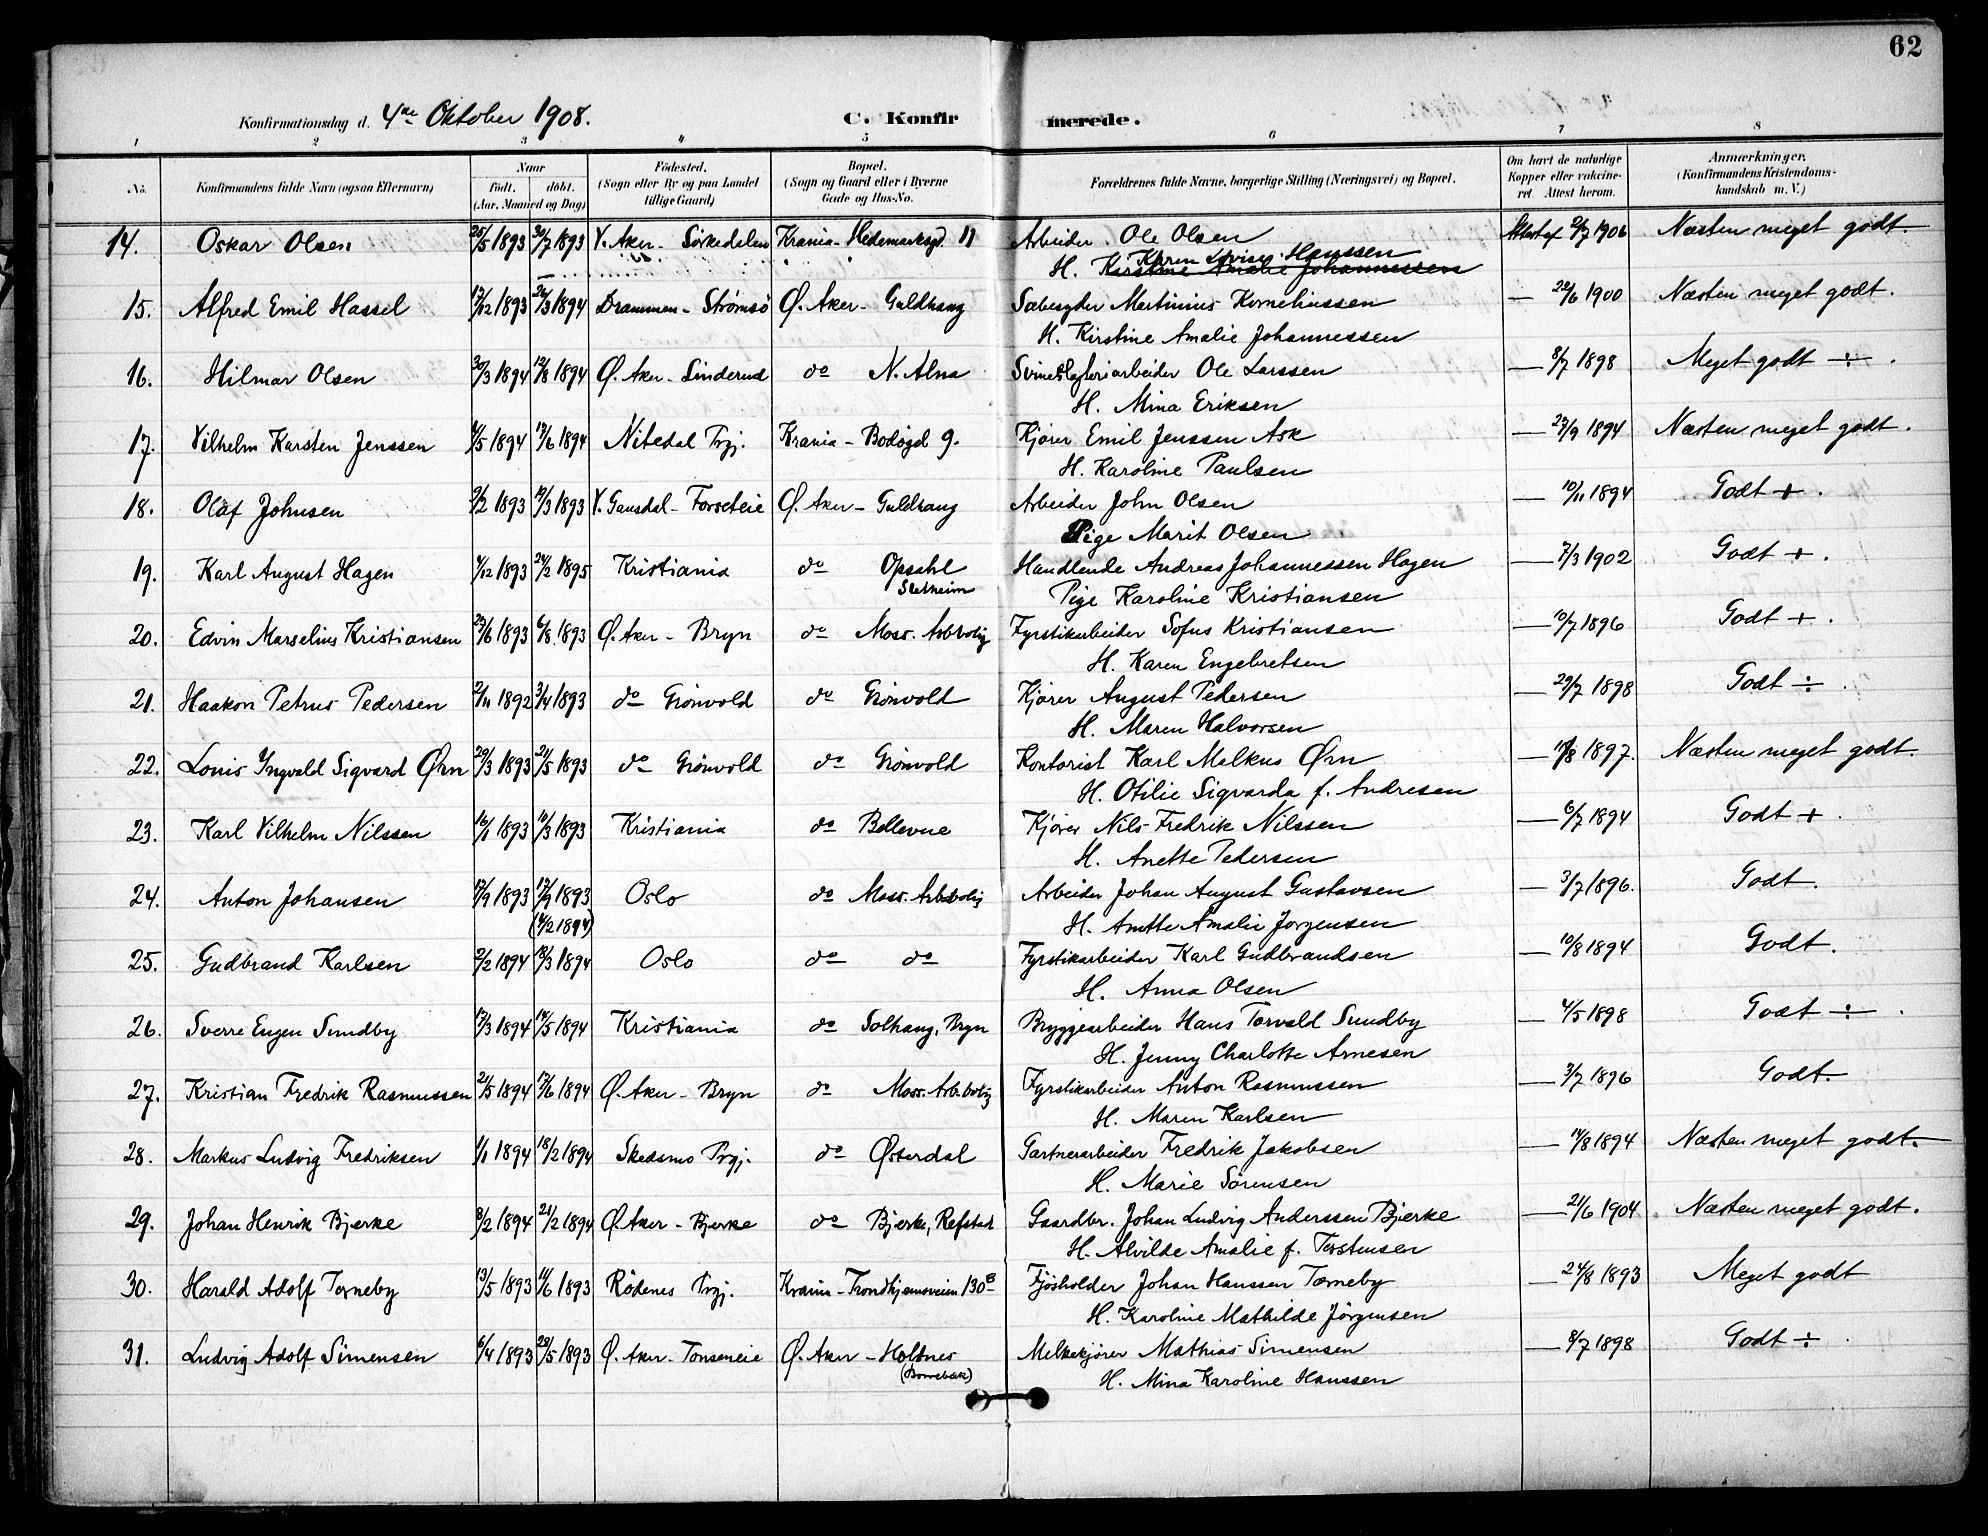 62
Konfirmationsdag d. 4de Oktober 1908. C. Konfirmerede.
1 2 3 4 5 6 7 8
No. Konfirmandens fulde Navn (ogsaa Efternavn) Naar født. døbt. (Aar, Maaned og Dag) Fødested. (Sogn eller By og paa Landet tillige Gaard) Bopæl. (Sogn og Gaard eller i Byerne Gade og Hus-No. Forældrenes fulde Navne, borgerlige Stilling (Næringsvei) og Bopæl. Om havt de naturlige Kopper eller vakcineret. Attest herom. Anmærkninger. (Konfirmandens Kristendomskundskab m. V.)
14. Oskar Olsen 25/5 1893 30/7 1893 V. Aker - Sørkedalen Krania - Hedemarksgd. 11 Arbeider Ole Olsen Attest af 2/7 1906 Næsten meget godt.
H. Karen Lovise Hanssen
Kirstine Amalie Johannessen
15. Alfred Emil Hassel 17/12 1893 26/3 1894 Drammen - Strømsø Ø. Aker - Guldhaug Sæbesyder Martinius Korneliussen — 22/6 1900 Næsten meget godt.
H. Kirstine Amalie Johannessen
16. Hilmar Olsen 30/3 1894 12/8 1894 Ø. Aker - Linderud do N. Alna Svineslagteriarbeider Ole Larssen — 8/7 1898 Meget godt ÷.
H. Mina Eriksen
17. Vilhelm Karsten Jenssen 4/5 1894 17/6 1894 Nitedal Prgj. Krania - Bodøgd 9. Kjører Emil Jenssen Ask — 27/9 1894 Næsten meget godt.
H. Karoline Paulsen
18. Olaf Johnsen 2/2 1893 19/3 1893 V. Gausdal - Forseteie Ø. Aker - Guldhaug Arbeider John Olsen — 10/11 1894 Godt +.
Pige Marit Olsen
19. Karl August Hagen 4/12 1893 24/2 1895 Kristiania do Opsahl Handlende Andreas Johannessen Hagen — 7/3 1902 Godt +.
Sletheim Pige Karoline Kristiansen
20. Edvin Marselius Kristiansen 23/6 1893 6/8 1893 Ø. Aker - Bryn do Moss. Arbbolig Fyrstikarbeider Sofus Kristiansen — 10/7 1896 Godt +.
H. Karen Engebretsen
21. Haakon Petrus Pedersen 2/11 1892 3/4 1893 do Grönvold do Grönvold Kjører August Pedersen — 29/7 1898 Godt ÷.
H. Maren Halvorsen
22. Louis Yngvald Sigvard Ørn 29/3 1893 21/5 1893 do Grönvold do Grönvold Kontorist Karl Malkus Ørn — 18/8 1897. Næsten meget godt.
H. Otilie Sigvarda f. Andresen
23. Karl Vilhelm Nilssen 16/1 1893 10/3 1893 Kristiania do Bellevue Kjører Nils Fredrik Nilssen — 6/7 1894 Godt +.
H. Anette Pedersen
24. Anton Johansen 17/9 1893 17/9 1893 Oslo do Moss. Arbbolig Arbeider Johan August Gustavsen — 3/7 1896. Godt.
(4/2 1894) H. Anette Amalie Jørgensen
25. Gudbrand Karlsen 2/2 1894 18/3 1894 Oslo do do Fyrstikarbeider Karl Gudbrandsen — 10/8 1894 Godt.
H. Anna Olsen
26. Sverre Eugen Sundby 17/3 1894 14/5 1894 Kristiania do Solhaug, Bryn Bryggearbeider Hans Torvald Sundby — 4/5 1898 Godt ÷.
H. Jenny Charlotte Arnesen
27. Kristian Fredrik Rasmussen 21/5 1894 17/6 1894 Ø. Aker - Bryn do Moss. Arbbolig Fyrstikarbeider Anton Rasmussen — 3/7 1896 Godt.
H. Maren Karlsen
28. Markus Ludvig Fredriksen 1/1 1894 18/2 1894 Skedsmo Prgj. do Østerdal Gartnerarbeider Fredrik Jakobsen — 14/8 1894 Næsten meget godt.
H. Marie Sørensen
29. Johan Henrik Bjerke 8/2 1894 21/2 1894 Ø. Aker - Bjerke do Bjerke, Refstad Gaardbr. Johan Ludvig Anderssen Bjerke — 21/6 1904 Næsten meget godt.
H. Alvilde Amalie f. Torstensen
30. Harald Adolf Torneby 13/5 1893 11/6 1893 Rödenes Prgj. Krania - Trondhjemsveien 130 B Fjøsholder Johan Hanssen Torneby — 24/8 1893 Meget godt
H. Karoline Mathilde Jørgensen
31. Ludvig Adolf Simensen 6/4 1893 28/5 1893 Ø. Aker - Tonseneie Ø. Aker - Holtnes Melkekjører Mathias Simensen — 8/7 1898 Godt ÷.
H. Mina Karoline Hanssen